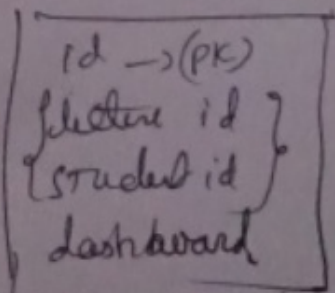 id → (PK)
{ lecture id }
{ student id }
dashboard